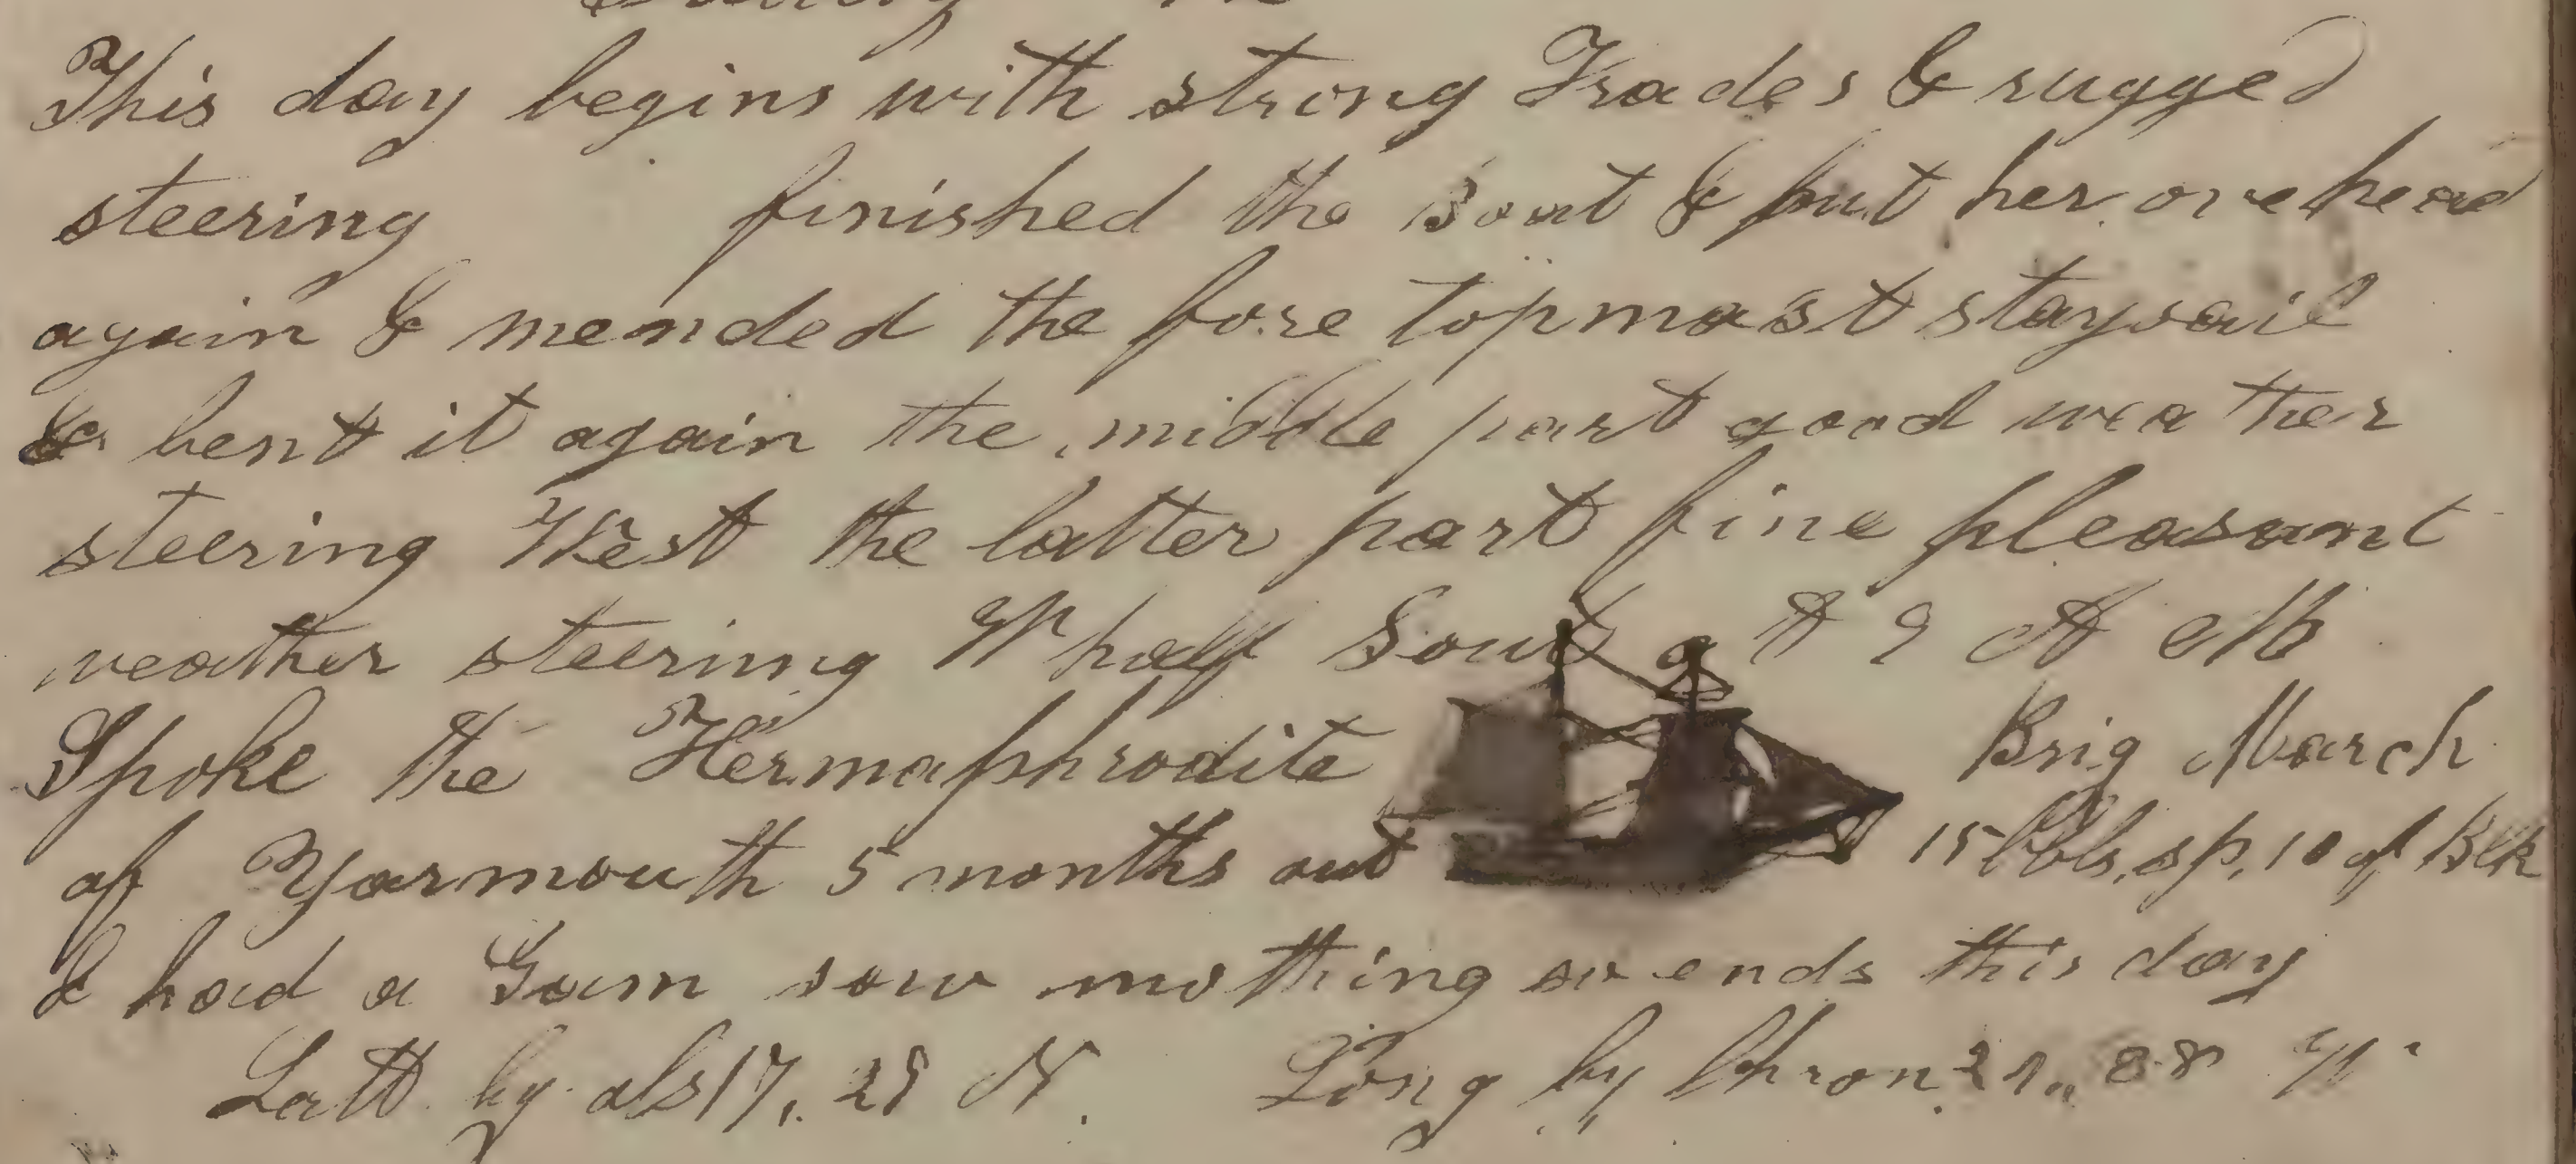 This day begins with strong Trades & rugged
steering finished the Boat & put her overhead
again & mended the fore topmast staysail
& bent it again the middle part good weather
steering West the latter part fine pleasant
weather steering W half Sout at 9 A M
Spoke the Hermaphrodite Brig March
of Yarmouth 5 months out 15 bbls, sp, 10 of Blk
& had a Gam saw nothing so ends this day
Latt by obs 17,, 25 N. Long by Chron